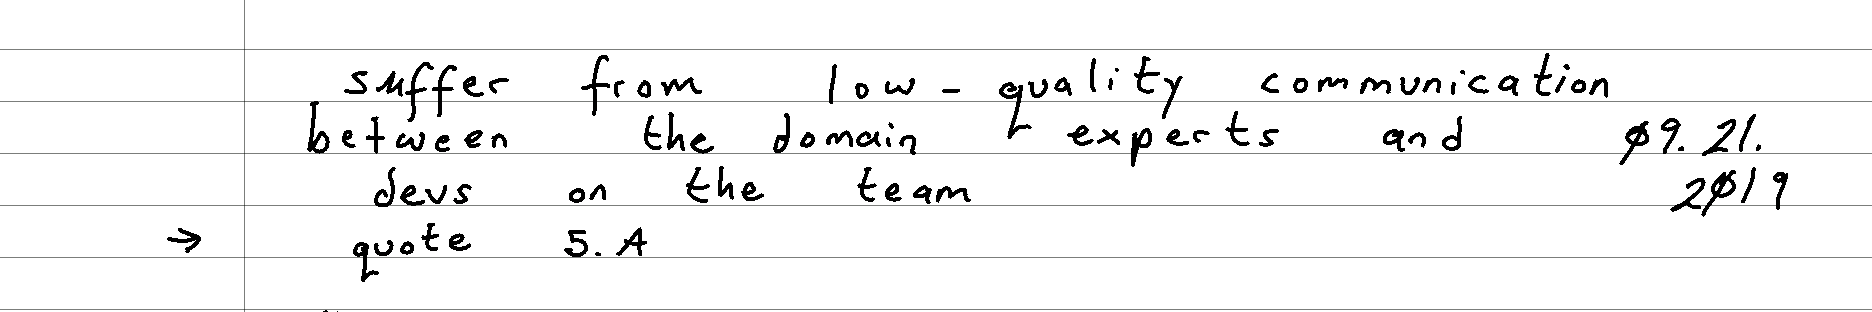 suffer from low-quality communication
between the domain experts and ø9.21.
devs on the team 2ø19
→ quote 5.A